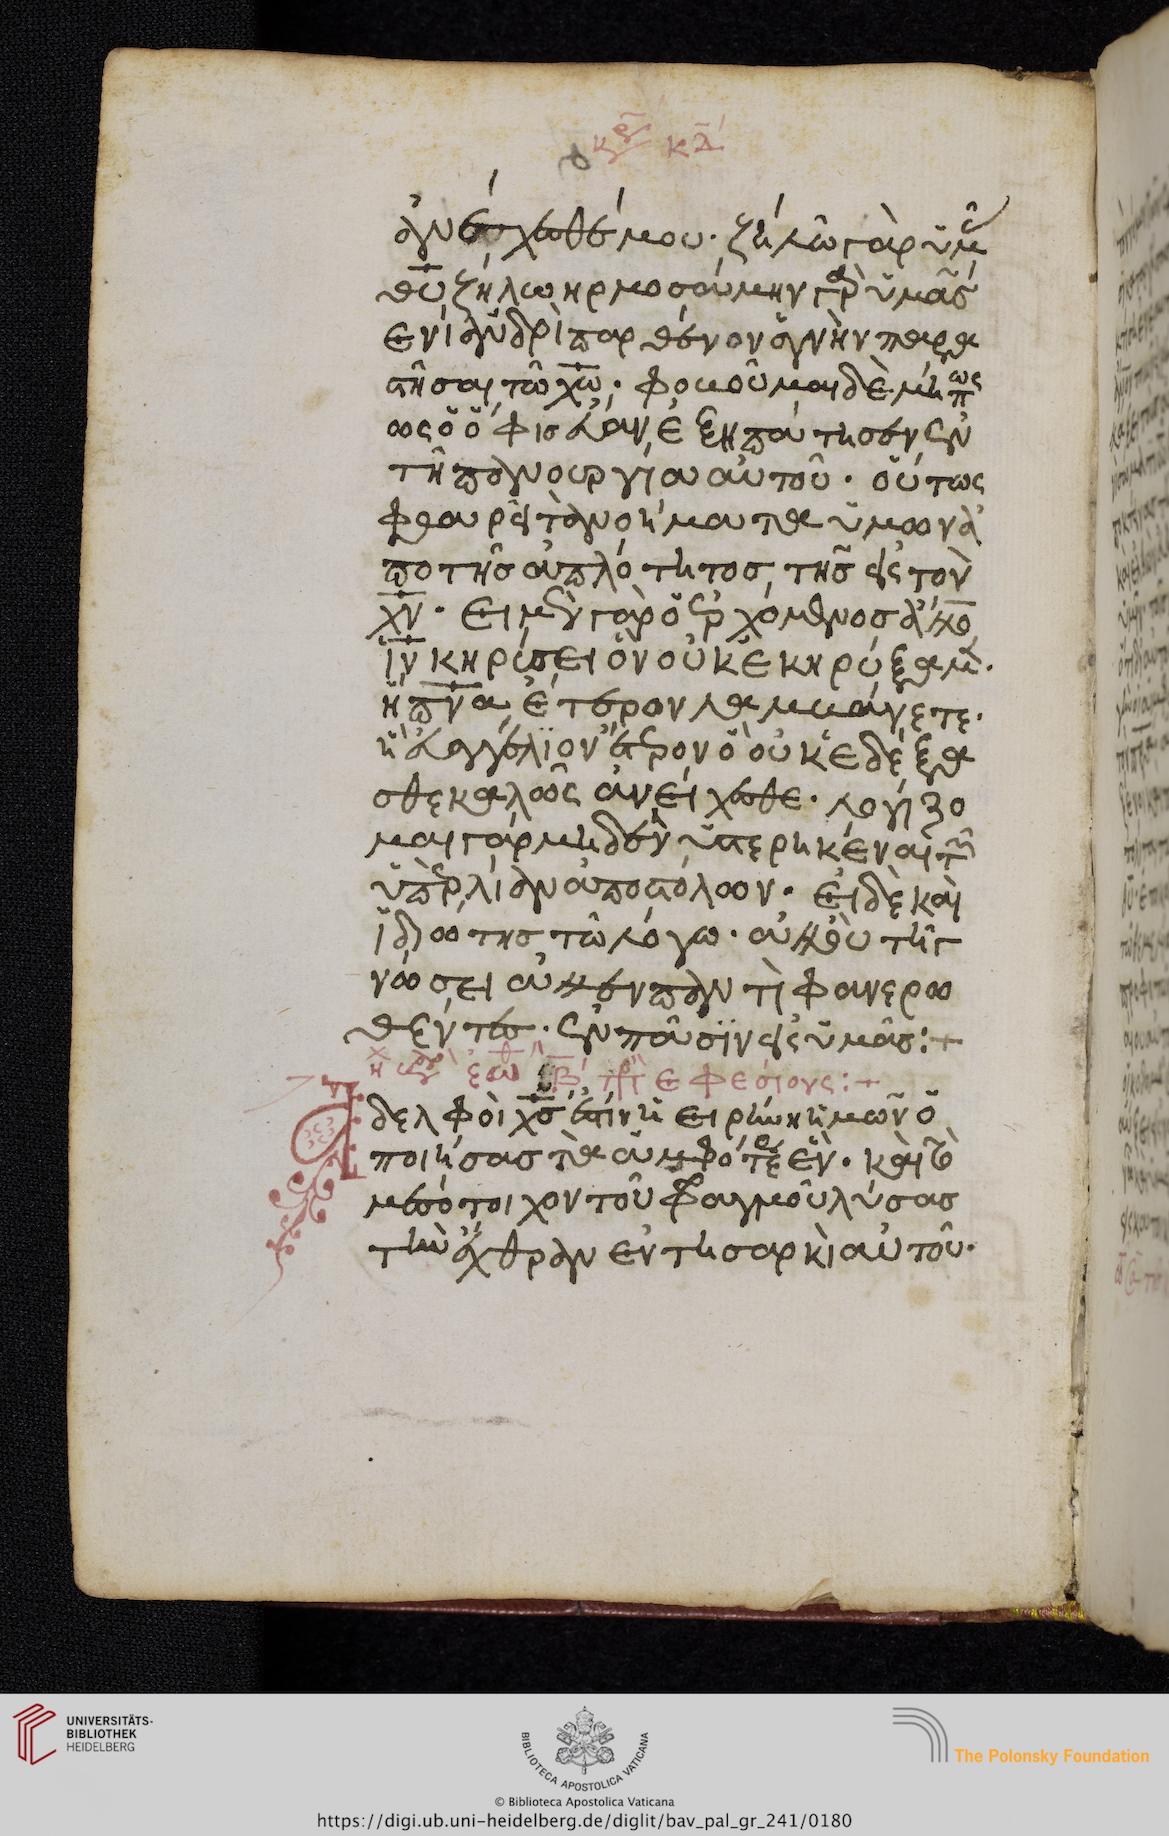 κυρ κδ
ἀνέσχεσθέ μου· ζηλῶ γὰρ ὑμᾶς
θυ ζήλω ηρμοσάμην γὰρ ὑμᾶς
ενὶ ἀνδρὶ παρθένον ἁγνὴν παρα
στῆσαι τῶ χω· φοβοῦμαι δὲ μήπως
ως ὁ ὄφις εὔαν ἐξηπάτησεν ἐν
τῆ πανουργία αὐτοῦ· οὕτως
φθαρεῖ τὰ νοήματα ὑμῶν ἀ
πὸ τῆς ἁπλότητος τῆς εἰς τὸν
χν· Ει μὲν γὰρ ὁ ἐρχόμενος ἄλλο
ιν κηρύσει ὃν οὐκ ἐκηρύξαμεν·
ἢ πνα ἕτερον λαμβάνετε·
ἢ εὐαγγέλιον ἕτερον ὃ οὐκ ἐδέξα
σθε καλῶς ἀνείχεσθε· λογίζο
μαι γὰρ μηδὲν ὑπερηκέναι τῶν
ὑπὲρ λίαν ἀποστόλων· Εἰ δὲ καὶ
ἰδιώτης τῶ λόγω· ἀλλ' οὐ τῆ γ
νώσει ἀλλ' εν παντὶ φανερω
θέντες· ἐν πᾶσιν εἰς ὑμᾶς:+
Εφεσίους:+
Αδελφοὶ χς ἐστίν ἡ ειρήνη ἡμῶν ὁ
ποιήσας τὰ ἀμφότερα ἕν· καὶ τὸ
μεσότοιχον τοῦ φραγμοῦ λύσας
τὴν ἔχθραν ἐν τῆ σαρκὶ αὐτοῦ·
UNIVERSITÄTS-
BIBLIOTHEK
HEIDELBERG
BIBLIOTECA APOSTOLICA VATICANA
The Polonsky Foundation
© Biblioteca Apostolica Vaticana
https://digi.ub.uni-heidelberg.de/diglit/bav_pal_gr_241/0180